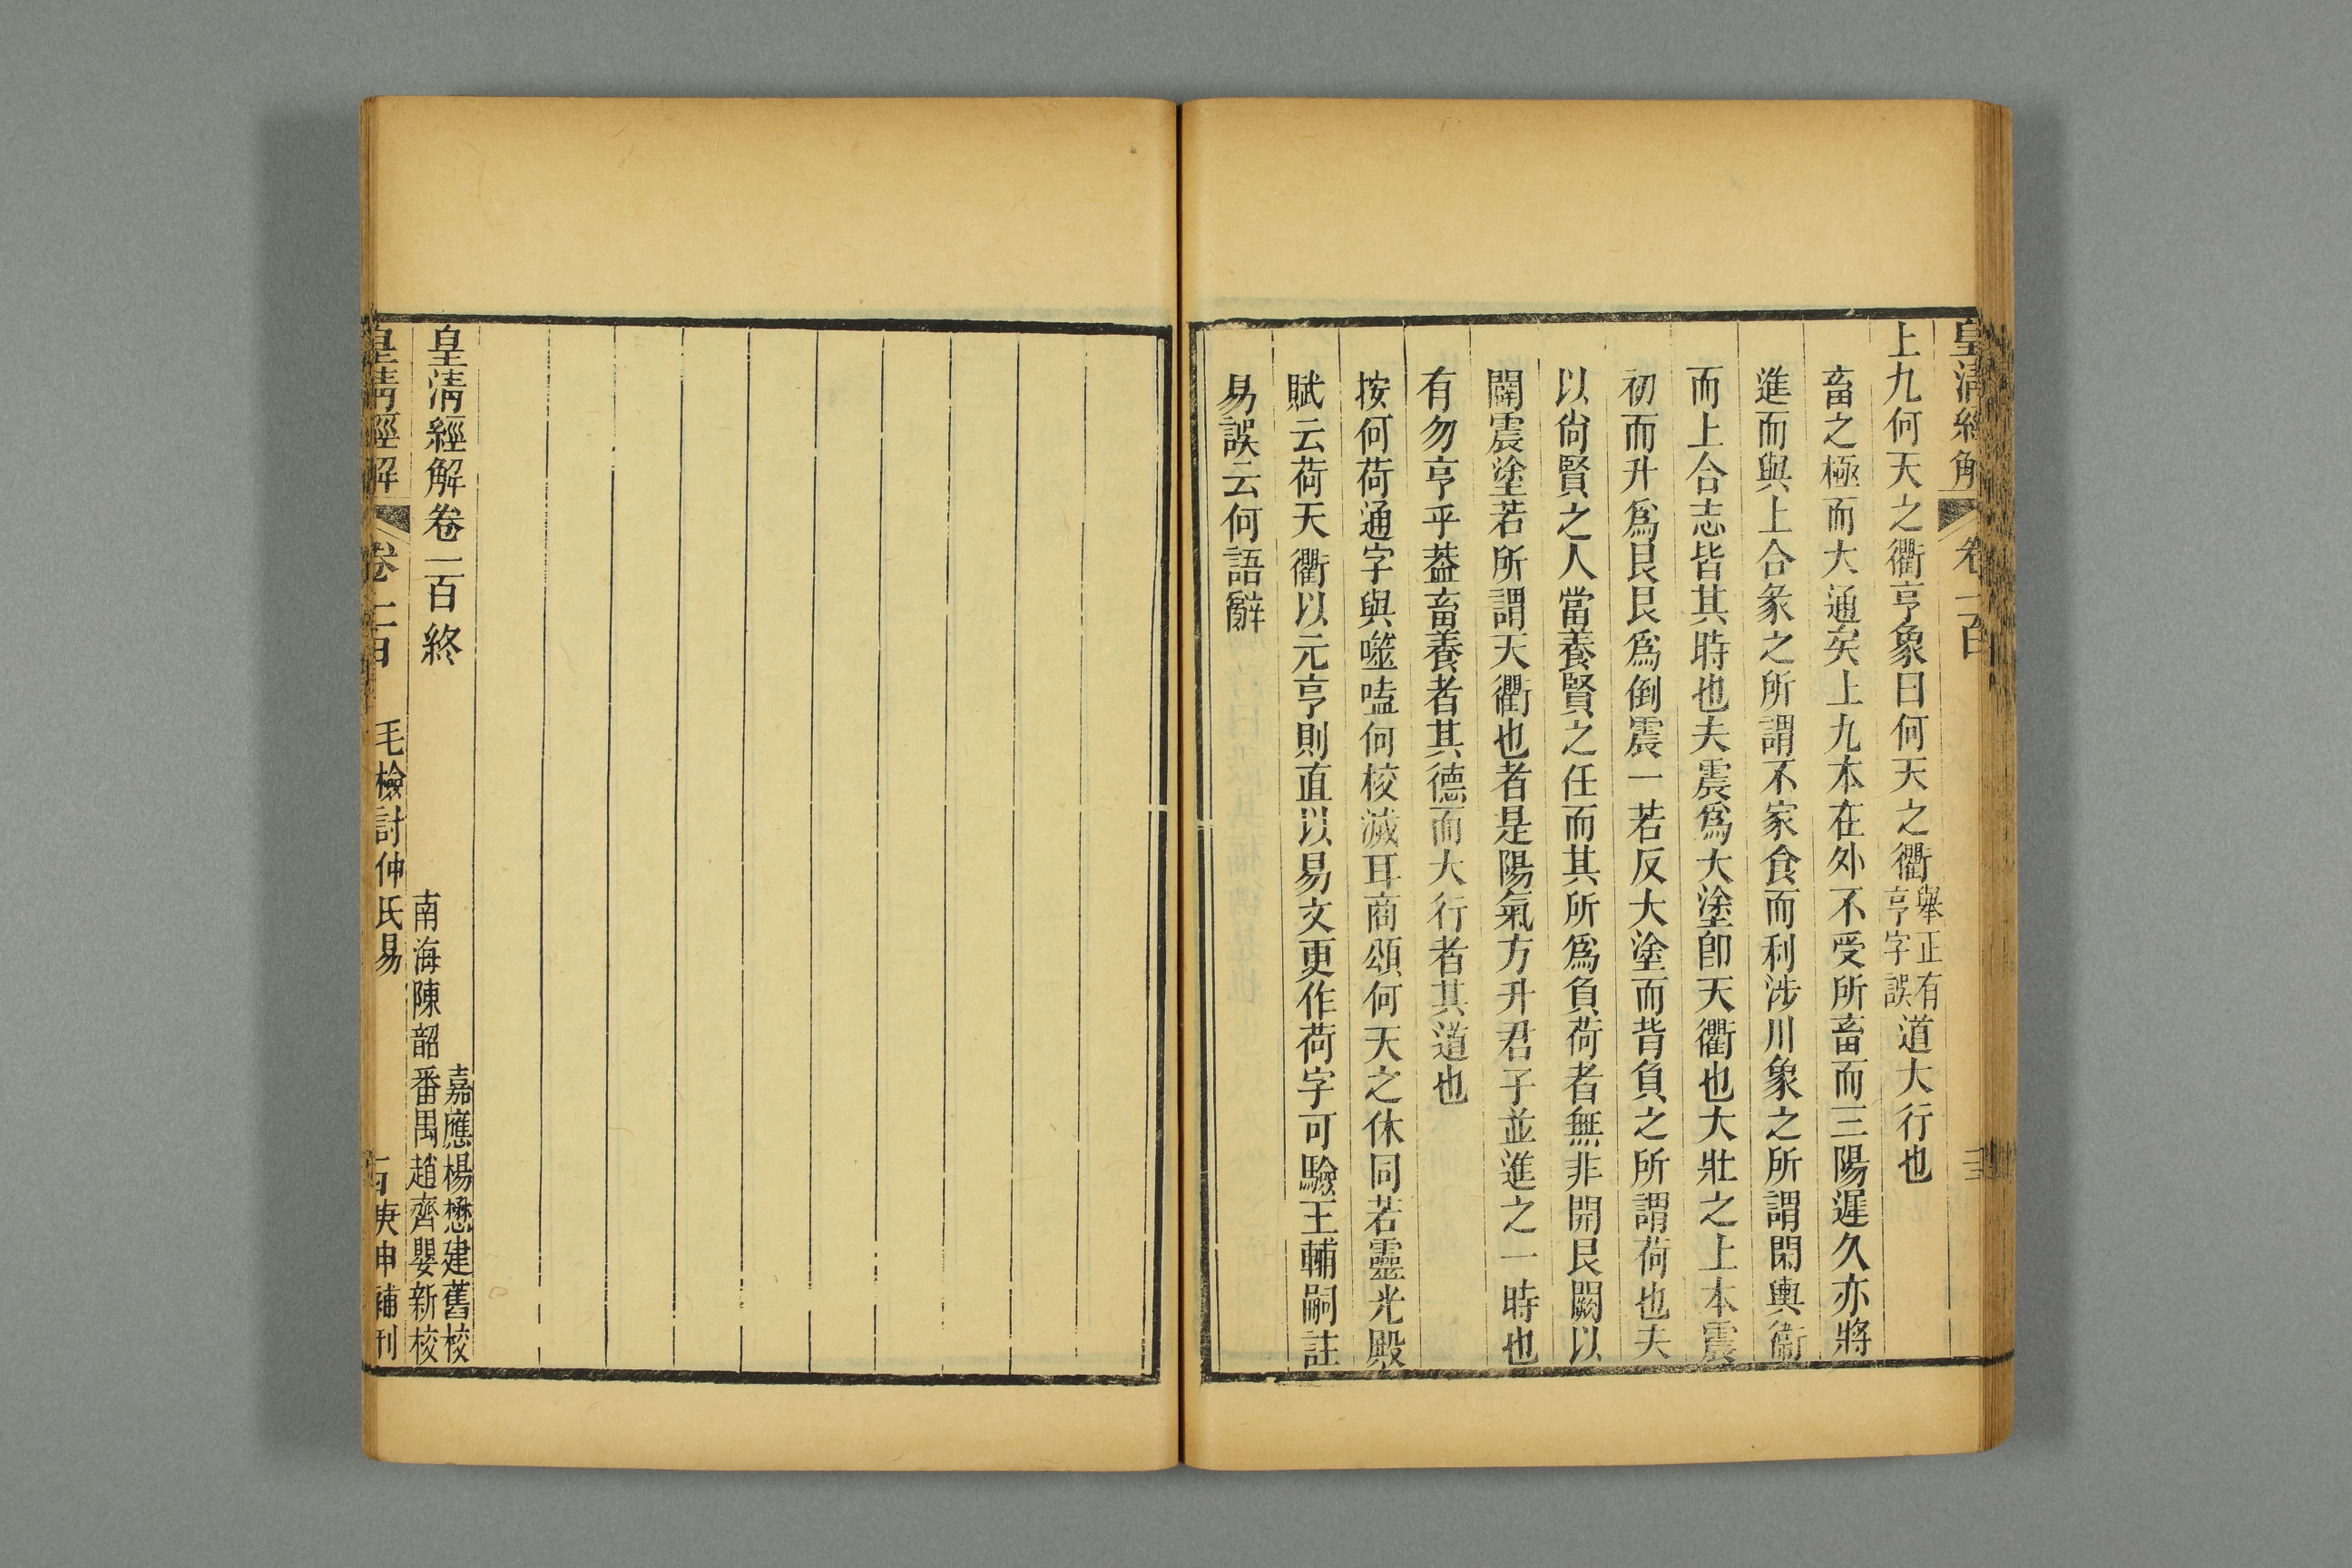 皇清經解 卷一百
上九何天之衢亨象曰何天之衢舉正有亨字誤道大行也
畜之極而大通矣上九本在外不受所畜而三陽遲久亦將
進而與上合彖之所謂不家食而利涉川象之所謂閑輿衞
而上合志皆其時也夫震爲大塗卽天衢也大壯之上本震
初而升爲艮艮爲倒震一若反大塗而背負之所謂荷也夫
以尙賢之人當養賢之任而其所爲負荷者無非開艮闕以
闢震塗若所謂天衢也者是陽氣方升君子並進之一時也
有勿亨乎葢畜養者其德而大行者其道也
按何荷通字與噬嗑何校滅耳商頌何天之休同若靈光殿
賦云荷天衢以元亨則直以易文更作荷字可驗王輔嗣註
易誤云何語辭
皇清經解卷一百終
嘉應楊懋建舊校
南海陳韶番禺趙齊嬰新校
皇清經解 卷一百 毛檢討仲氏易 庚申補刊